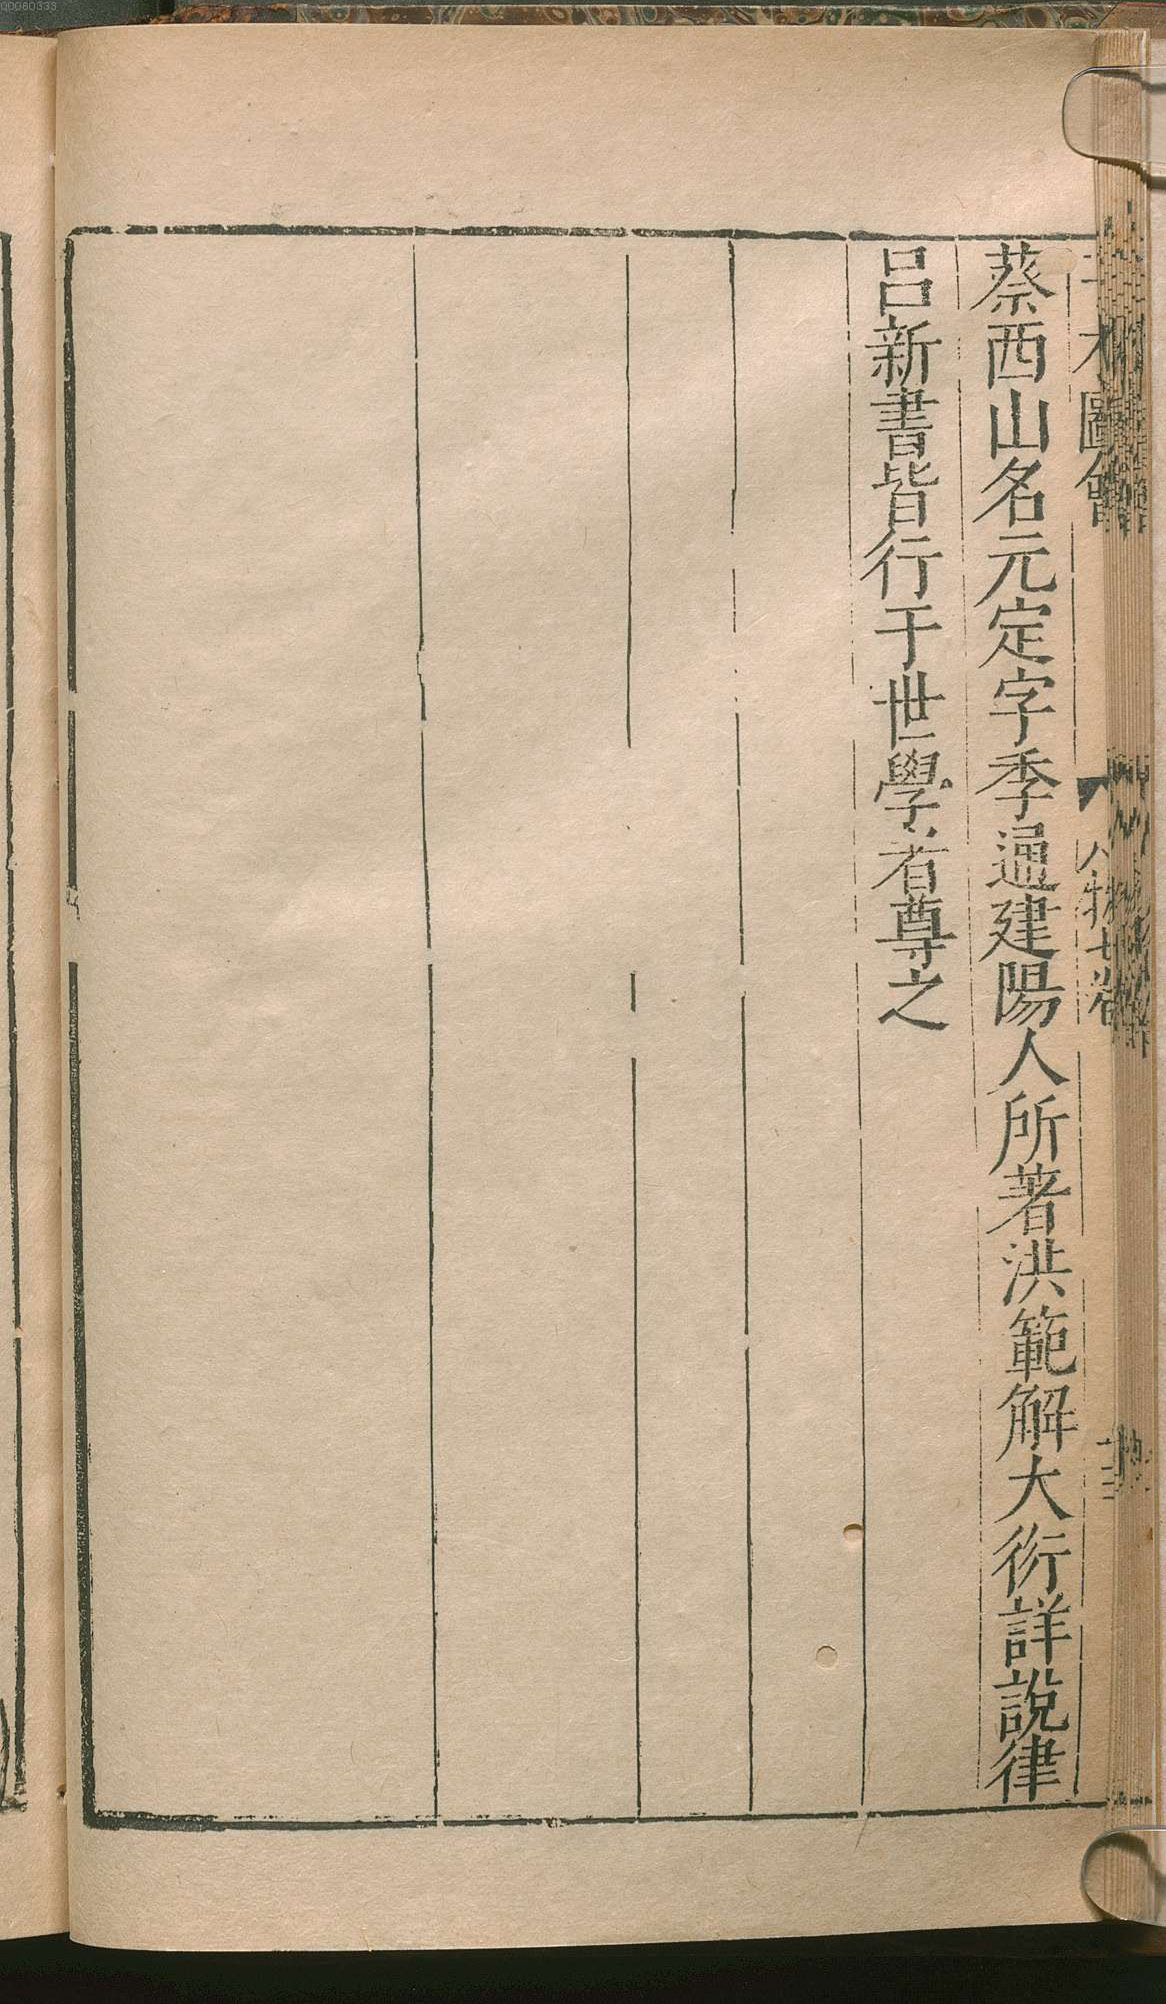 蔡西山名元定字季通建陽人所著洪範解大衍詳說律
呂新書皆行于世學者尊之
圖會
人物七卷
00060333